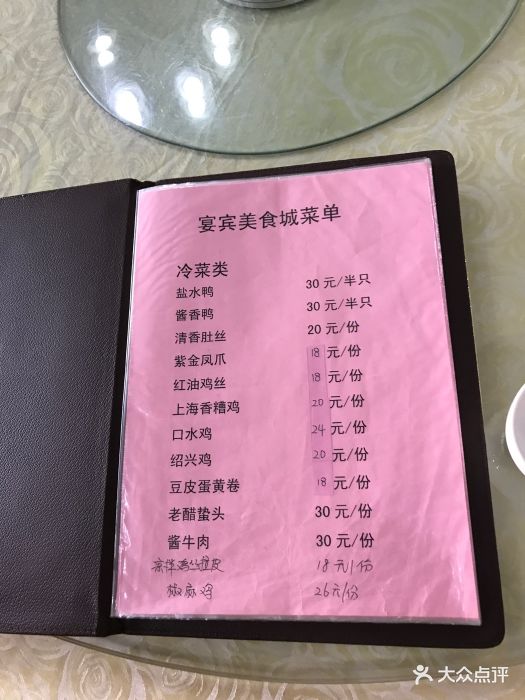 宴宾美食城菜单
冷菜类
盐水鸭 30 元/半只
酱香鸭 30 元/半只
清香肚丝 20 元/份
紫金凤爪 18 元/份
红油鸡丝 18 元/份
上海香糟鸡 20 元/份
口水鸡 24 元/份
绍兴鸡 20 元/份
豆皮蛋黄卷 18 元/份
老醋蛰头 30 元/份
酱牛肉 30 元/份
凉拌鸡丝拉皮 18元/份
椒麻鸡 26元/份
大众点评